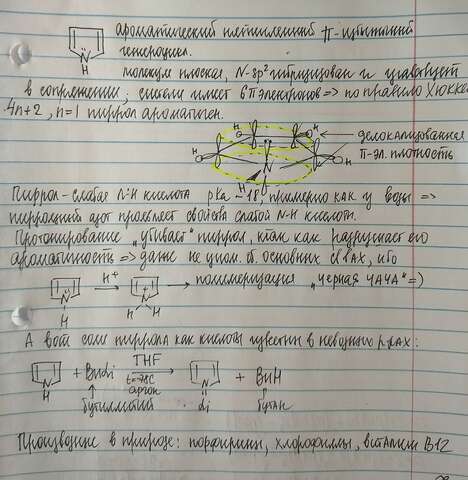 ароматический пятичленный π-избыточный
гетероцикл.
N
H
молекула плоская, N-sp² гибридизован и участвует
в сопряжении; система имеет 6 π электронов => по правилу Хюккеля
4n+2, n=1 пиррол ароматичен.
делокализованная
π-эл. плотность
H
H
H
H
H
N
Пиррол-слабая N-H кислота pKa ~18, примерно как у воды =>
пиррольный азот проявляет свойства слабой N-H кислоты.
Протонирование „убивает" пиррол, так как разрушает его
ароматичность => даже не говорим об основных св-вах, ибо
N
H
H⁺
N
H H
полимеризация „черная ЧАЧА" =)
А вот соли пиррола как кислоты известны в неводных р-рах:
N
H
+ BuLi
THF
t=-78C
аргон
N
Li
+ BuH
бутиллитий
бутан
Производные в природе: порфирины, хлорофиллы, витамин B12